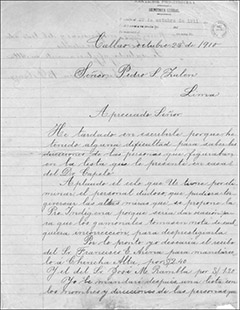 Callao, octubre 28 de 1910
Señor Pedro S. Zulen
Lima
Apreciado Señor
He tardado en escribirle porque he
tenido alguna dificultad para saber las
direcciones de las personas que figuraban
en la lista que le presenté en casa
del Dr Capelo.
Aplaudo el celo que Ud. tiene por
minar al personal dudoso que pudiera
las miras que se propone la
Pro Indígena porque sería dar
a que los gamonales
quiera incorreccion para desprestigiarla.
Por lo pronto yo desearía el recibo
del Sr Francisco E. Mora para mandar
lo a Chincha Alta, por
Y el del Sr José M. por S/ 1.20
Yo le mandaré después una lista con
los nombres y direcciones de las personas que